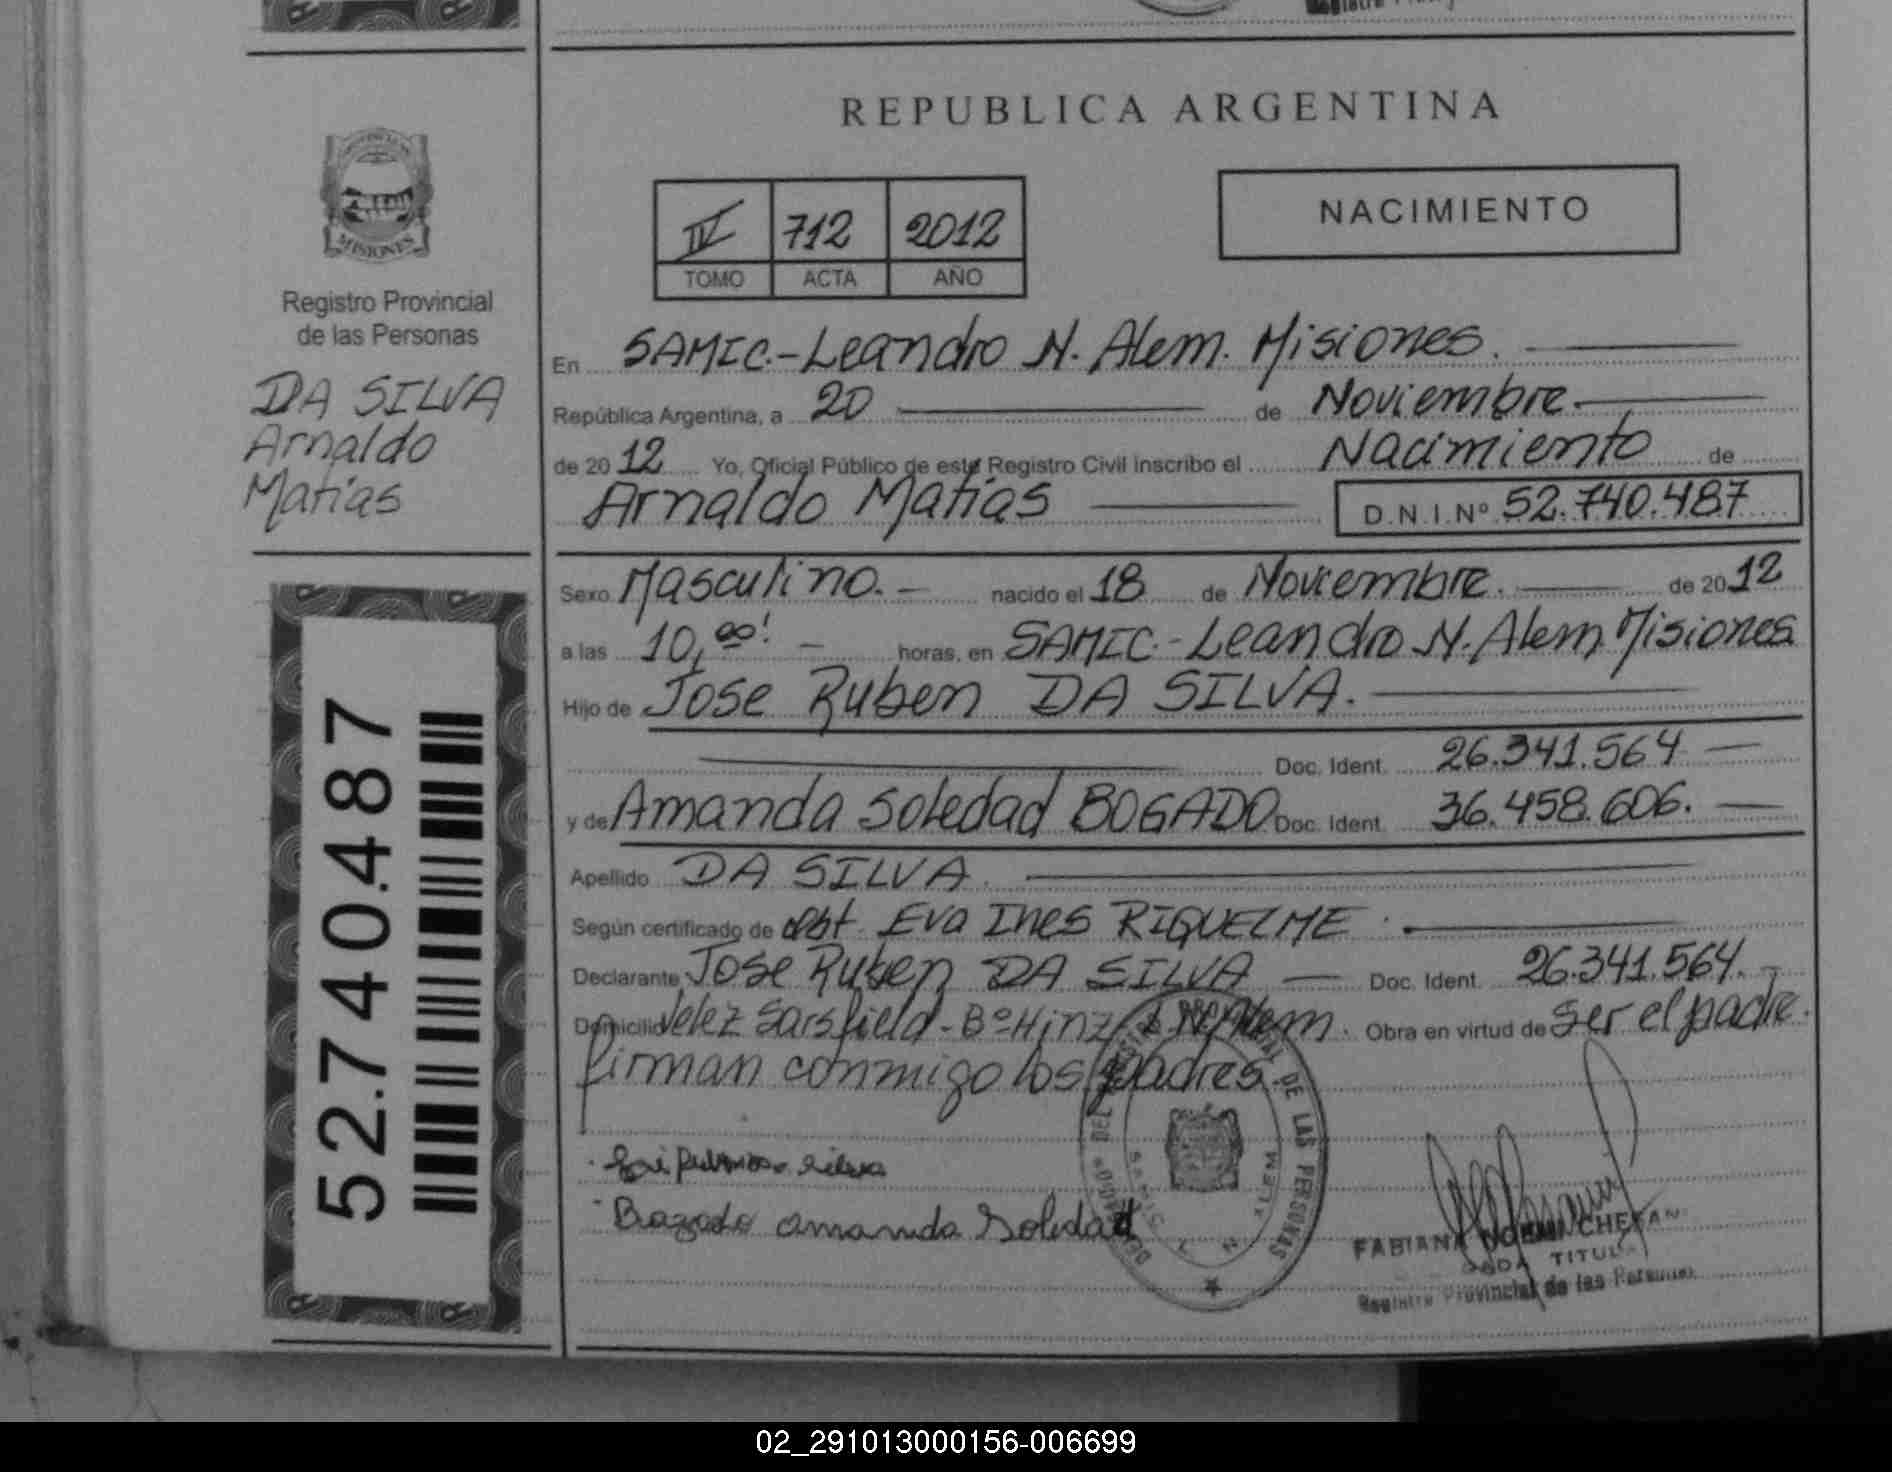 REPUBLICA ARGENTINA
IV 712 2012
TOMO ACTA AÑO
NACIMIENTO
MISIONES
Registro Provincial
de las Personas
DA SILVA
Arnaldo
Matías
52.740.487
En SAMIC.-Leandro N. Alem. Misiones.
República Argentina, a 20 de Noviembre.
de 20 12 Yo, Oficial Público de este Registro Civil inscribo el Nacimiento de
Arnaldo Matías D.N.I.Nº 52.740.487
Sexo Masculino.- nacido el 18 de Noviembre. de 20 12
a las 10,00! - horas, en SAMIC.-Leandro N. Alem Misiones
Hijo de Jose Ruben DA SILVA.
Doc. Ident. 26.341.564
y de Amanda Soledad BOGADO Doc. Ident. 36.458.606.
Apellido DA SILVA.
Según certificado de Obt. Eva Ines RIQUELME.
Declarante Jose Ruben DA SILVA Doc. Ident. 26.341.564.-
Domicilio Velez Sarsfield-Bº Hinz L.N.Alem. Obra en virtud de ser el padre.
firman conmigo los padres.
silva
Bogado amanda Soledad
DE LAS PERSONAS
FABIANA NOEMI CHEFAN
TITULAR
Registro Provincial de las Personas
02_291013000156-006699